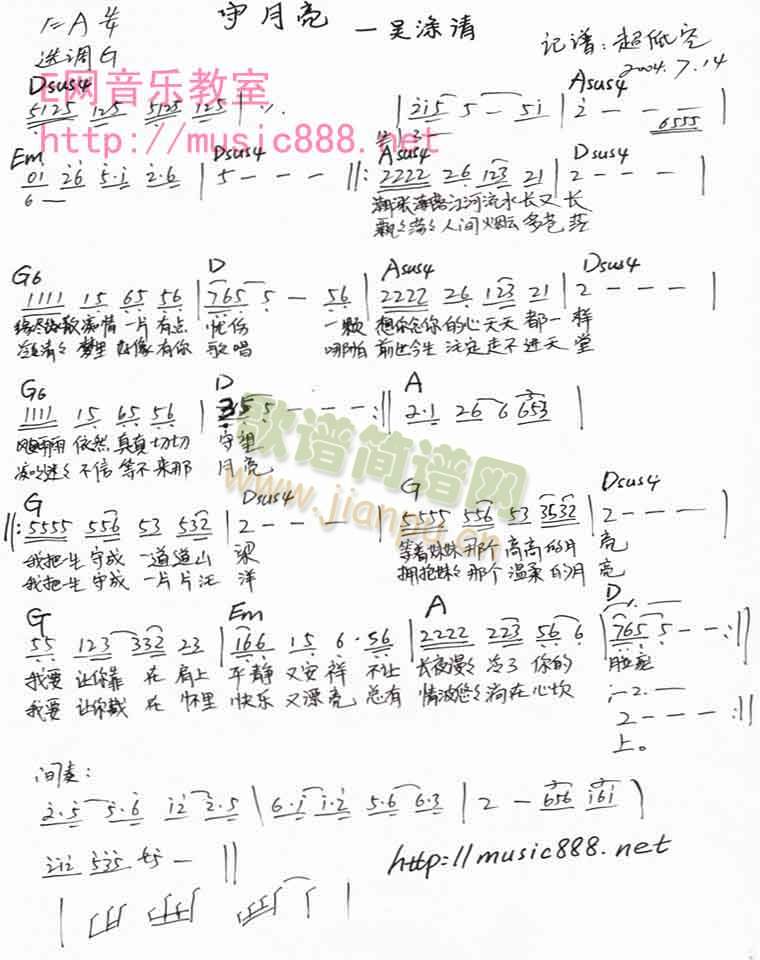 1=A 4/4
守月亮 —吴涤清
选调G
记谱:超低空
2004.7.14
E网音乐教室
http://music888.net
Dsus4 Asus4
5125 125 5125 125 | ٪ | 2i5 5 — 5i | 2 - - 6555 |
Em Dsus4 Asus4 Dsus4
01 26 5·i 2·6 | 5 - - - ‖: 2222 26 123 21 | 2 - - - |
6 —
潮涨潮落江河流水长又长
飘飘荡荡人间烟云多苍茫
G6 D Asus4 Dsus4
1111 15 65 56 | 765 5 — 56 | 2222 26 123 21 | 2 - - - |
缘尽缘散痴情一片有点忧伤 一颗想你念你的心天天都一样
冷冷清清梦里好像有你歌唱 哪怕前世今生注定走不进天堂
G6 D A
1111 15 65 56 | 355 - - - :‖ 2·1 26 6 653 |
风风雨雨依然真真切切守望
不信等不来那月亮
歌谱简谱网
www.jianpu.cn
G Dsus4 G Dsus4
‖: 5555 556 53 532 | 2 - - - | 5555 556 53 3532 | 2 - - - |
我把一生守成一道道山梁 等着妹妹那个高高的月亮
我把一生守成一片片汪洋 拥抱妹妹那个温柔的月亮
G Em A D
55 123 332 23 | 166 15 6·56 | 2222 223 56 6 | 765 5 - - :‖
我要让你靠在肩上平静又安祥 不让长夜漫漫冷了你的脸庞
我要让你戴在怀里快乐又漂亮 总有情波悠悠淌在心坎
1-2.
2 - - - :‖
上。
间奏:
2·5 5·6 12 2·5 | 6·1 1·2 5·6 6·3 | 2 — 656 161 |
212 535 5 — ‖
http://music888.net